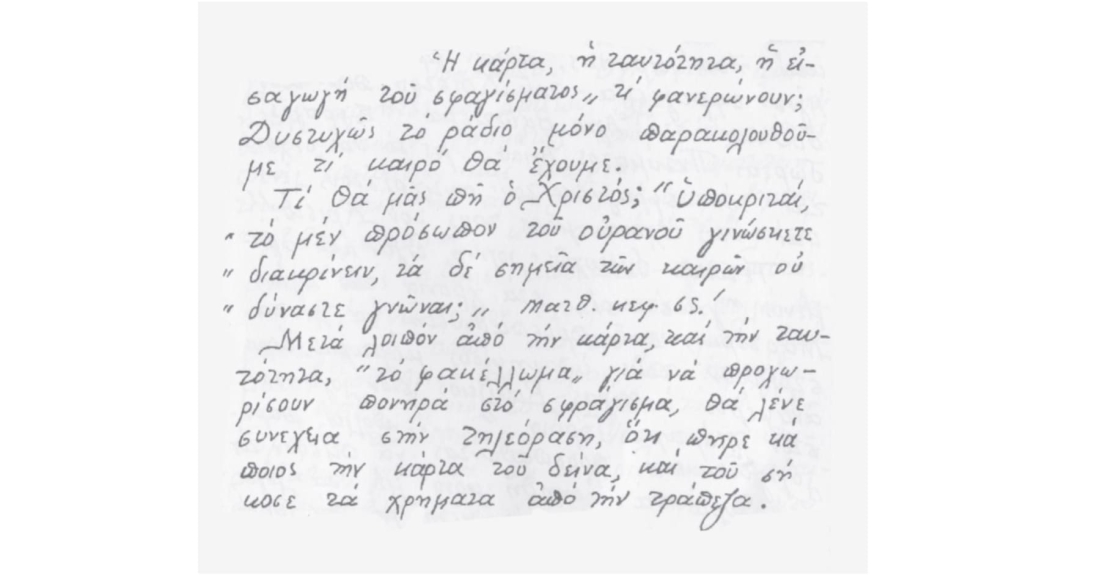 Ἡ κάρτα, ἡ ταυτότητα, ἡ εἰ-
σαγωγή τοῦ σφαγίσματος,, τί φανερώνουν;
Δυστυχῶς τό ράδιο μόνο παρακολουθοῦ-
με τί καιρό θά ἔχουμε.
Τί θά μᾶς πῆ ὁ Χριστός; "ὑποκριταί,
" τό μέν πρόσωπον τοῦ οὐρανοῦ γινώσκετε
" διακρίνειν, τά δέ σημεῖα τῶν καιρῶν οὐ
" δύναστε γνῶναι;,, Ματθ. κεφ. ις.'
Μετά λοιπόν ἀπό τήν κάρτα, καί τήν ταυ-
τότητα, "τό φακέλλωμα,, γιά νά προχω-
ρίσουν πονηρά στό σφράγισμα, θά λένε
συνεχεια στήν τηλεόραση, ὅτι πηρε κά
ποιος τήν κάρτα τοῦ δείνα, καί τοῦ σή
κοσε τά χρηματα ἀπό τήν τράπεζα.